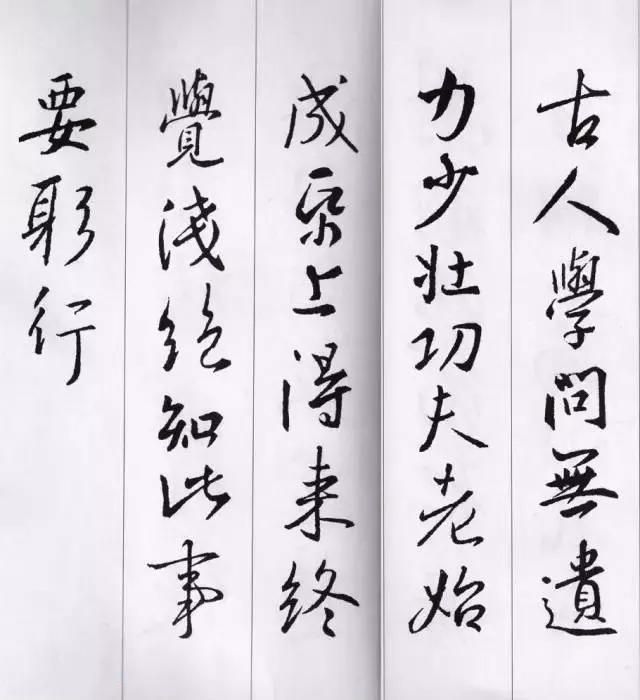 古人學問無遺
力少壯功夫老始
成帋上得来終
覺淺絕知此事
要躬行